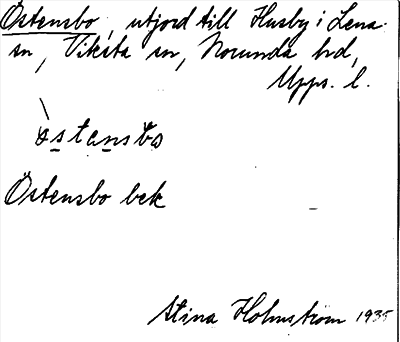 Östensbo, utjord till Husby i Lena
sn, Viksta sn, Norunda hd,
Upps. l.
òstansbo
Östensbo bek
Stina Holmström 1935